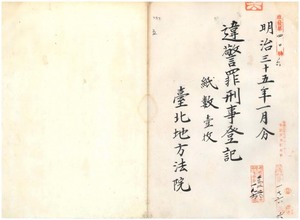 明治三十五年一月分
違警罪刑事登記
紙數壹枚
臺北地方法院